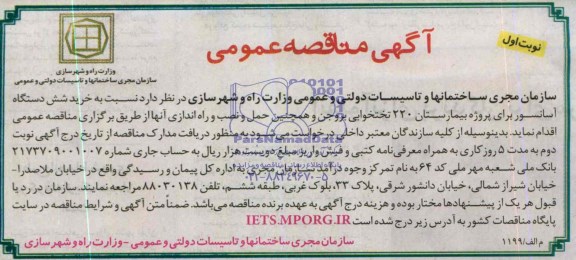 نوبت اول
آگهی مناقصه عمومی
وزارت راه و شهرسازی
سازمان مجری ساختمانها و تاسیسات دولتی و عمومی
سازمان مجری ساختمانها و تاسیسات دولتی و عمومی وزارت راه و شهرسازی در نظر دارد نسبت به خرید شش دستگاه
آسانسور برای پروژه بیمارستان ۲۲۰ تختخوابی بروجن و همچنین حمل و نصب و راه اندازی آنها از طریق برگزاری مناقصه عمومی
اقدام نماید. بدینوسیله از کلیه سازندگان معتبر داخلی درخواست می شود به منظور دریافت مدارک مناقصه از تاریخ درج آگهی نوبت
دوم به مدت ۵ روز کاری به همراه معرفی نامه کتبی و فیش واریز مبلغ دویست هزار ریال به حساب جاری شماره ۲۱۷۳۷۰۹۰۰۱۰۰۷
بانک ملی شعبه مهر ملی کد ۶۴ به نام تمرکز وجوه درآمد سازمان مجری به اداره کل پیمان و رسیدگی واقع در خیابان ملاصدرا-
خیابان شیراز شمالی، خیابان دانشور شرقی، پلاک ۳۳، بلوک غربی، طبقه ششم، تلفن ۸۸۰۳۰۱۳۸ مراجعه نمایند. سازمان در رد یا
قبول هر یک از پیشنهادها مختار بوده و هزینه درج آگهی به عهده برنده مناقصه می باشد. ضمنا متن آگهی و شرایط مناقصه در سایت
پایگاه مناقصات کشور به آدرس زیر درج شده است IETS.MPORG.IR
سازمان مجری ساختمانها و تاسیسات دولتی و عمومی - وزارت راه و شهرسازی
م الف/۱۱۹۹
ParsNamadData
۰۲۱-۸۸۳۴۹۶۷۰-۵